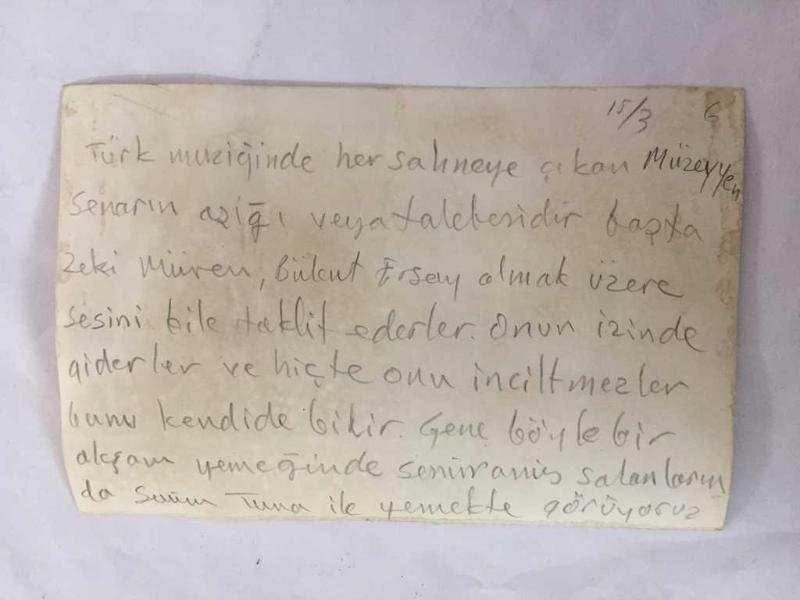 15/3 6
Türk muziğinde her sahneye çıkan Müzeyyen
Senarın aşığı veya talebesidir başta
Zeki Müren, Bülent Ersay olmak üzere
sesini bile taklit ederler. Onun izinde
giderler ve hiçte onu inciltmezler
bunu kendide bilir. Gene böyle bir
akşam yemeğinde semiramis salonların
da Tuna ile yemekte görüyoruz